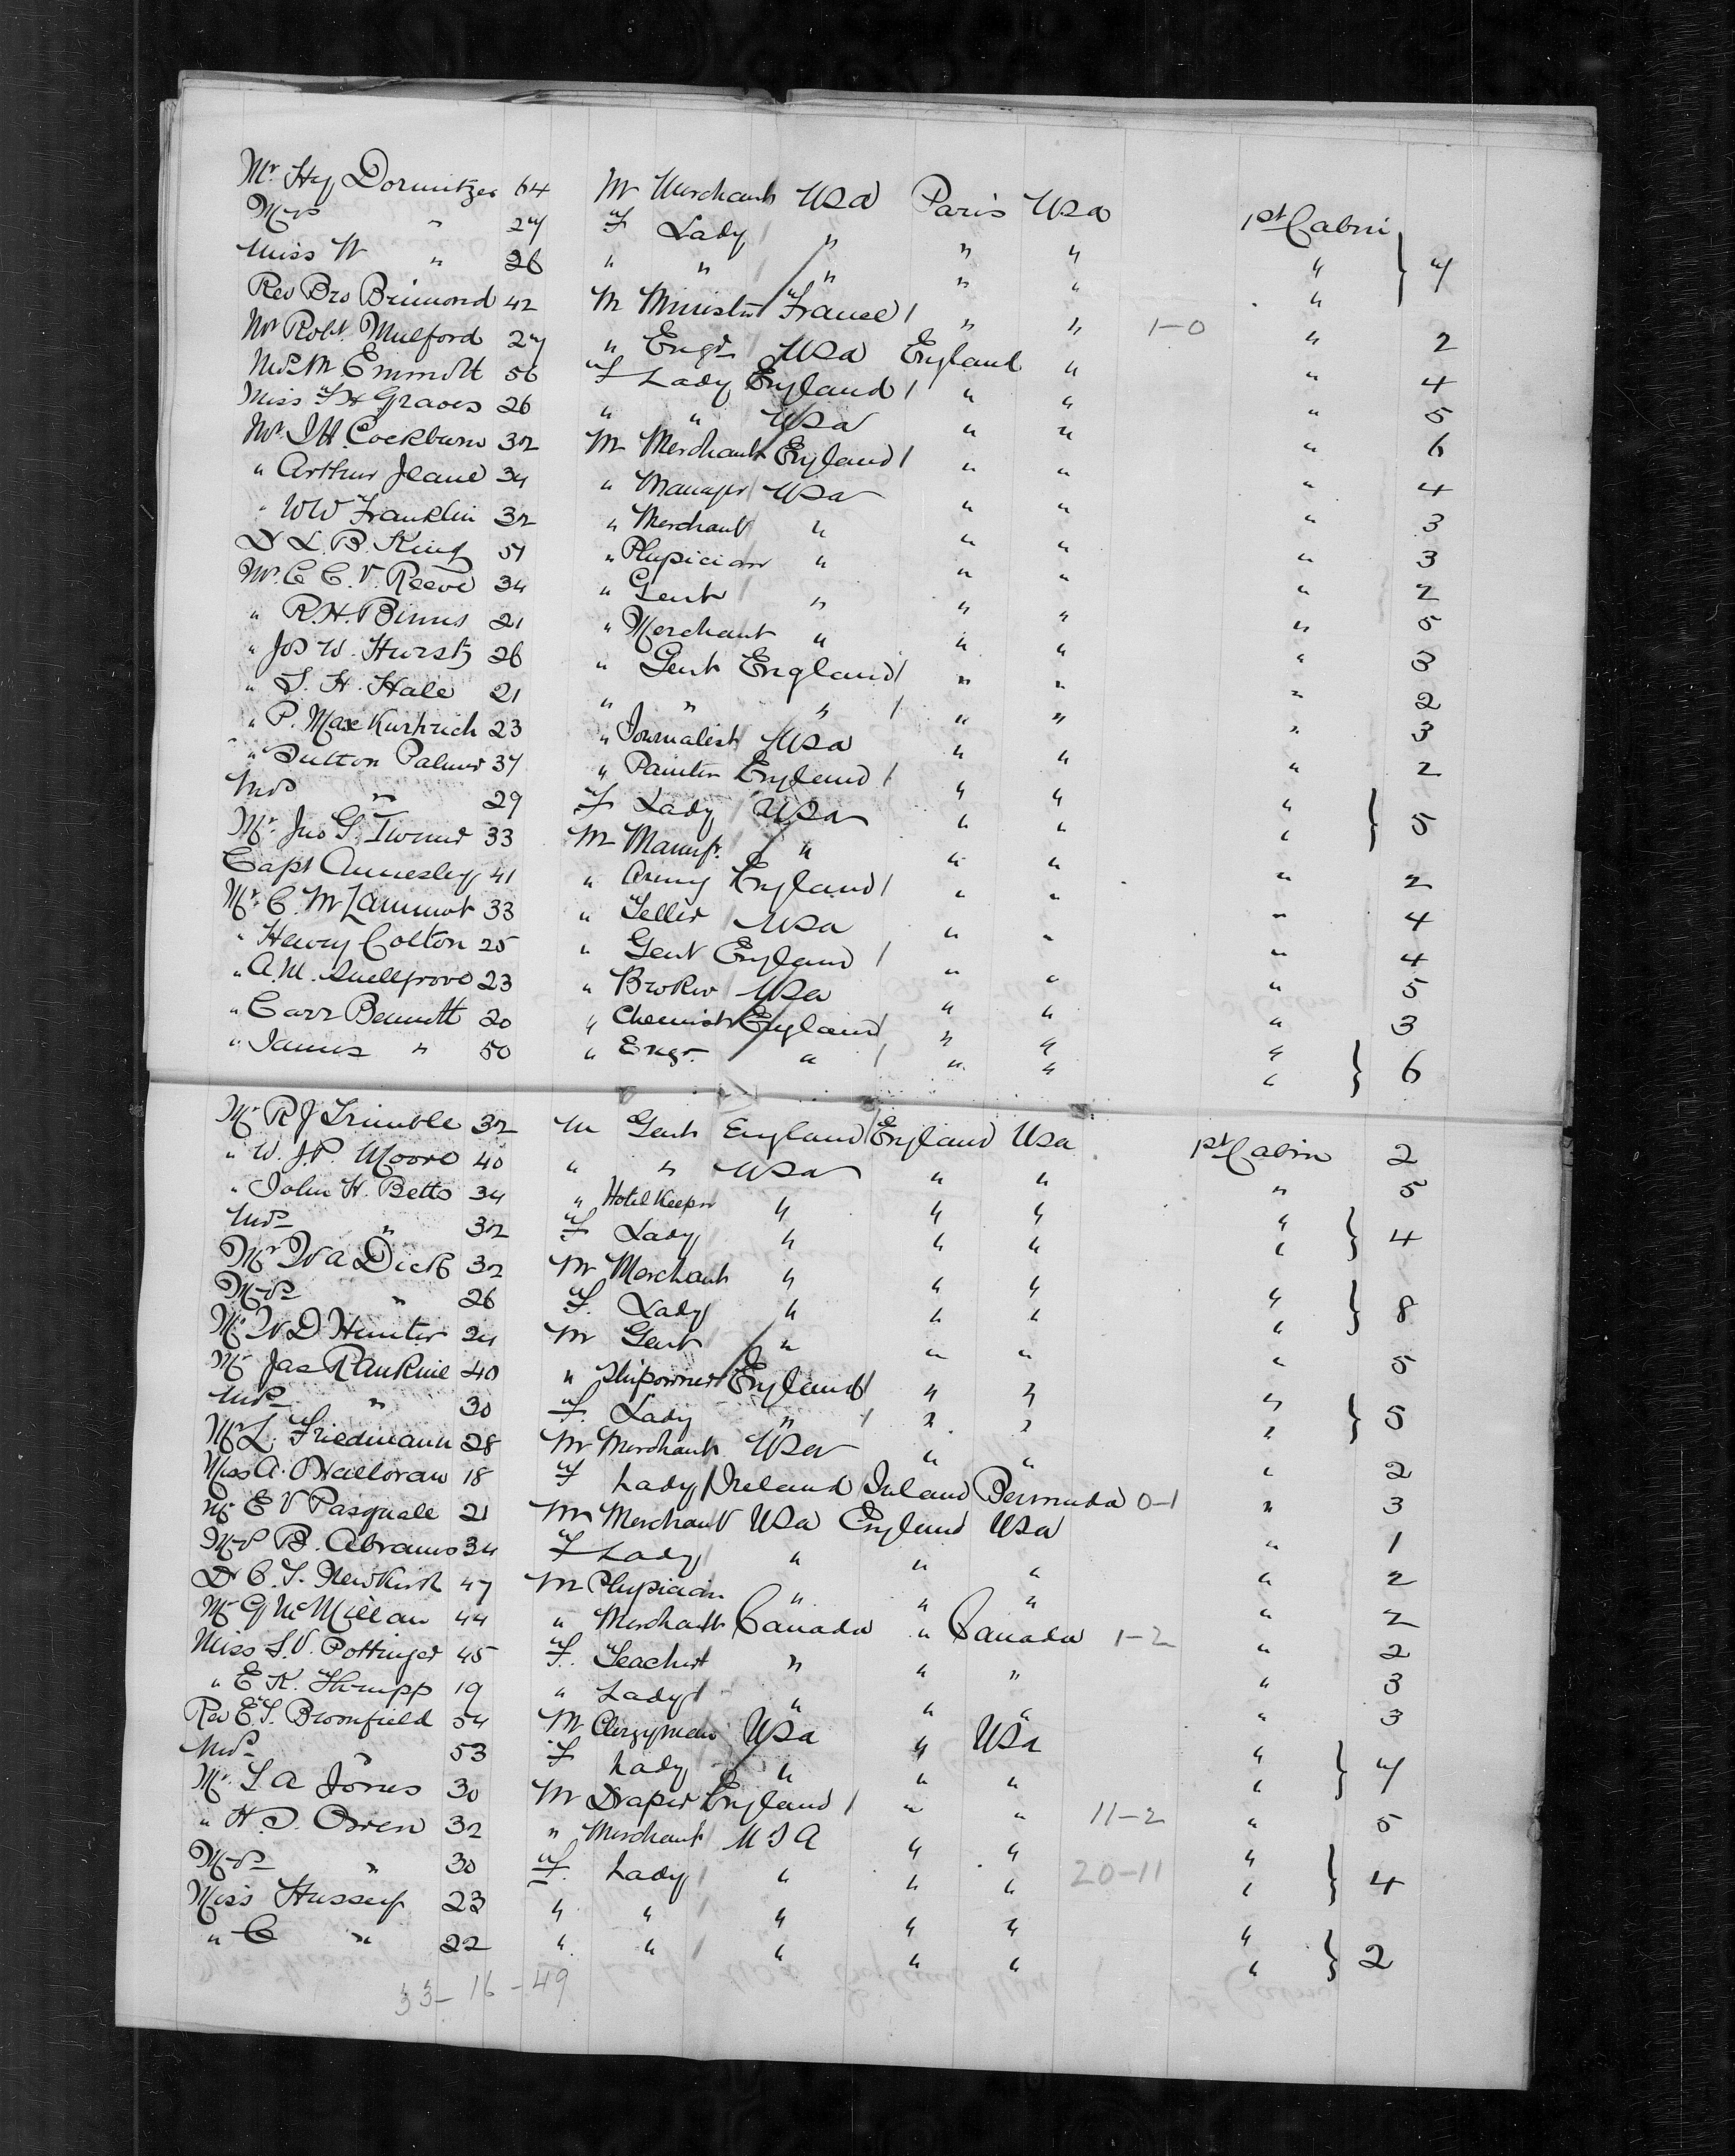 Mr Hy Dormitzer 64 M Merchant USA Paris USA 1st Cabin
Mrs " 27 F Lady " " " "
Miss W " 26 " " " " " " } 7
Rev Bro Brimond 42 M Minister France " " 1-0 " 2
Mr Robt. Mulford 27 " Engr USA England " " 4
Mrs M Emmott 56 F Lady England " " " 5
Miss F H Graves 26 " " USA " " " 6
Mr. J H Cockburn 32 M Merchant England " " " 4
" Arthur Jeane 34 " Manager USA " " " 3
" W W Franklin 32 " Merchant " " " " 3
Dr L. B. King 51 " Physician " " " " 2
Mr. C. C. V. Reeve 34 " Gent " " " " 5
" R. H. Binns 21 " Merchant " " " " 3
" Jos W. Hurst 26 " Gent England " " " 2
" S. H. Hale 21 " " " " " " 3
" P. Max Kuhrich 23 " Journalist USA " " " 2
" Sutton Palmer 37 " Painter England " " "
Mrs " 29 F Lady USA " " " } 5
Mr. Jno G. 33 M Manufr. " " " " 2
Capt Annesley 41 " Army England " " " 4
Mr. C. M Lammot 33 " Teller USA " " " 4
" Henry Colton 25 " Gent England " " " 5
" A. M. Snellgrove 23 " Broker USA " " " 3
" Carr Bennett 20 " Chemist England " " "
" James " 50 " Engr. " " " " } 6
Mr R J Trimble 32 M Gent England England USA 1st Cabin 2
" W. J. P. Moore 40 " " USA " " " 5
" John H. Betts 34 " Hotel Keeper " " " "
Mrs " 32 F Lady " " " " } 4
Mr W A Dick 32 M Merchant " " " "
Mrs " 26 F. Lady " " " " } 8
Mr W D Hunter 24 M Gent " " " " 5
Mr Jas Rankine 40 " Shipowner England " " "
Mrs " 30 F. Lady " " " " } 5
Mr L. Friedmann 28 M Merchant USA " " " 2
Miss A. O'Halloran 18 F Lady Ireland Ireland Bermuda 0-1 " 3
Mr E V Pasquale 21 M Merchant USA England USA " 1
Mrs B. Abrams 34 F Lady " " " " 2
Dr C. T. Newkirk 47 M Physician " " " " 2
Mr G McMillan 44 " Merchant Canada " Canada 1-2 " 2
Miss S. V. Pottinger 45 F. Teacher " " " " 3
" E K. 19 " Lady " " " " 3
Rev E. S. Bromfield 54 M Clergyman USA " USA "
Mrs " 53 F Lady " " " " } 7
Mr. S A Jones 30 M Draper England " " 11-2 " 5
" H. D. Orren 32 " Merchant USA " " "
Mrs " 30 F. Lady " " " 20-11 " } 4
Miss Hussey 23 " " " " " "
" C " 22 " " " " " " } 2
33-16-49